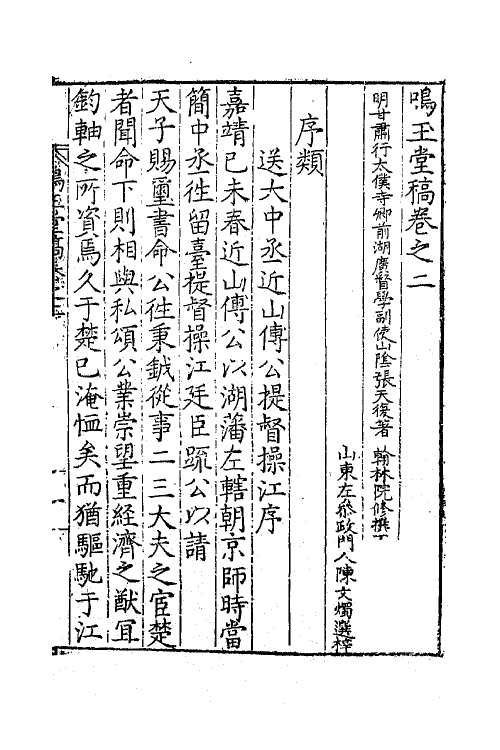 鳴玉堂稿卷之二
明甘肅行太僕寺卿前湖廣督學副使山隂張天復著 翰林院修撰
山東左叅政門人陳文燭選梓
序類
送大中丞近山傅公提督操江序
嘉靖己未春近山傅公以湖藩左轄朝京師時當
簡中丞徃留臺提督操江廷臣䟽公以請
天子賜璽書命公徃秉鉞從事二三大夫之宦楚
者聞命下則相與私頌公業崇望重經濟之猷宜
鈞軸之所資焉久于楚已淹恤矣而猶驅馳于江
鳴玉堂稿卷之二